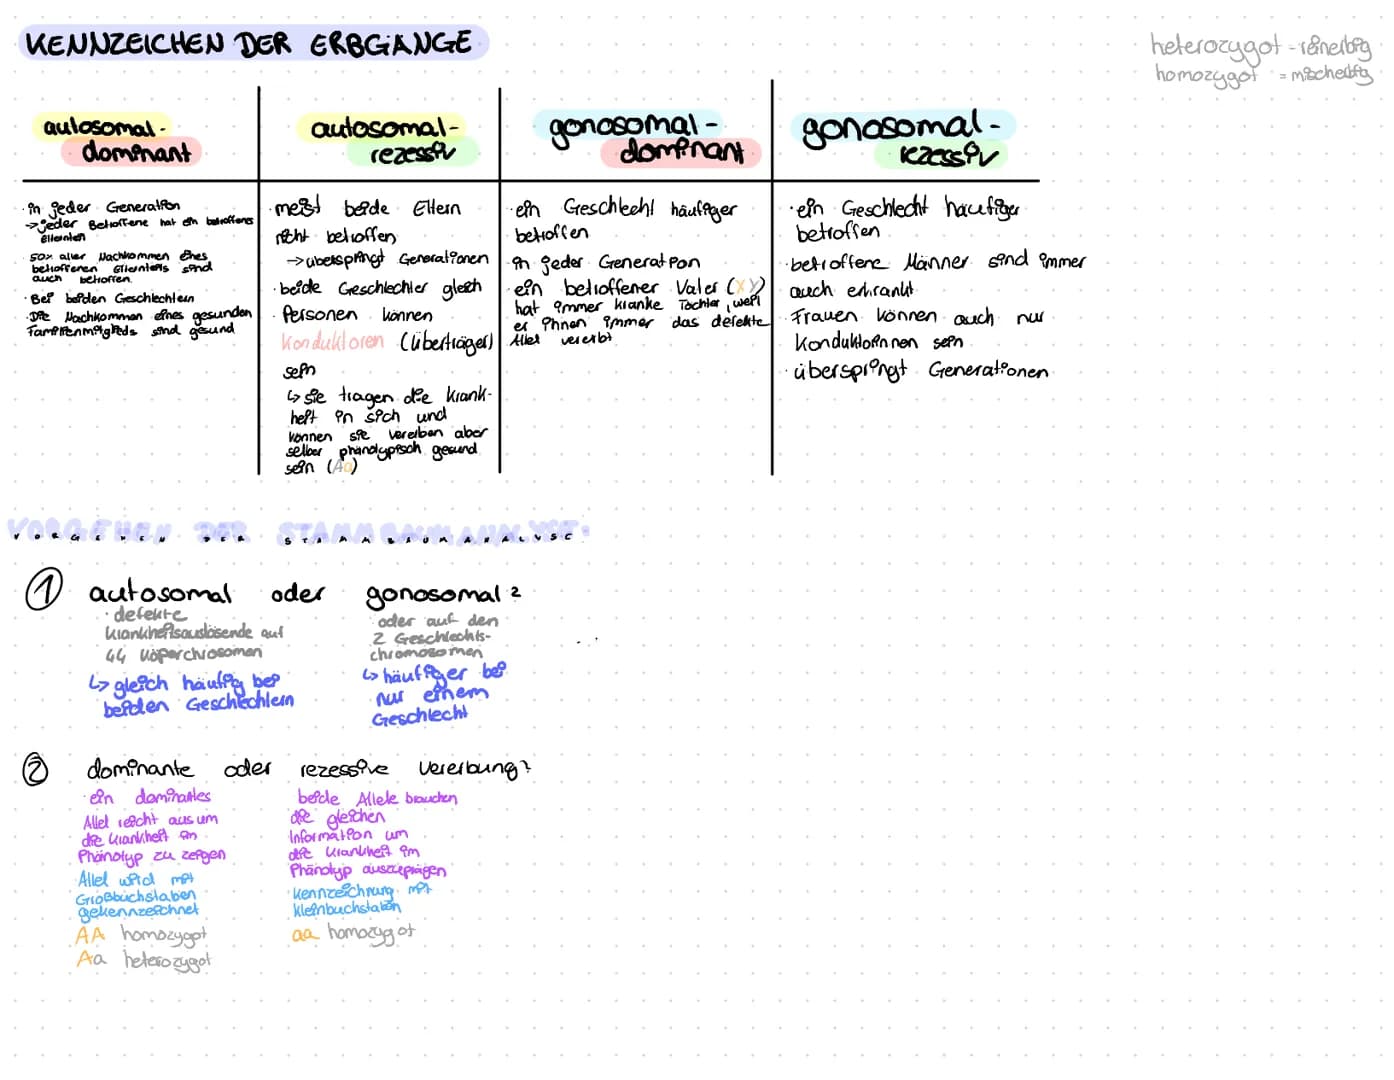 KENNZEICHEN DER ERBGÄNGE
heterozygot - reinerbig
homozygot = mischerbig
autosomal-
dominant
autosomal-
rezessiv
gonosomal-
dominant
gonosomal-
rezessiv
· in jeder Generation
→ jeder Betroffene hat ein betroffenes
Elternteil
50% aller Nachkommen eines
betroffenen Elternteils sind
auch betroffen.
· Bei beiden Geschlechtern
· Die Nachkommen eines gesunden
Familienmitglieds sind gesund
· meist beide Eltern
nicht betroffen
→ überspringt Generationen
· beide Geschlechter gleich
· Personen können
Konduktoren (Überträger)
sein
↳ sie tragen die Krank-
heit in sich und
können sie vererben aber
selber phänotypisch gesund
sein (Aa)
· ein Geschlecht häufiger
betroffen
in jeder Generation
ein betroffener Vater (XY)
hat immer kranke Töchter, weil
er ihnen immer das defekte
Allel vererbt
· ein Geschlecht häufiger
betroffen
· betroffene Männer sind immer
auch erkrankt
· Frauen können auch nur
Konduktorinnen sein
· überspringt Generationen
VORGEHEN DER STAMMBAUMANALYSE
① autosomal oder gonosomal?
· defekte
krankheitsauslösende auf
44 Köperchrosomen
↳ gleich häufig bei
beiden Geschlechtern
oder auf den
2 Geschlechts-
chromosomen
↳ häufiger bei
nur einem
Geschlecht
② dominante oder rezessive Vererbung?
· ein dominantes
Allel reicht aus um
die Krankheit im
Phänotyp zu zeigen
Allel wird mit
Großbuchstaben
gekennzeichnet
AA homozygot
Aa heterozygot
beide Allele brauchen
die gleichen
Information um
die Krankheit im
Phänotyp auszuprägen
Kennzeichnung mit
Kleinbuchstaben
aa homozygot